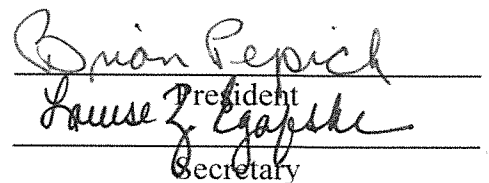 Brian Pepich
President
Louise Z.
Secretary